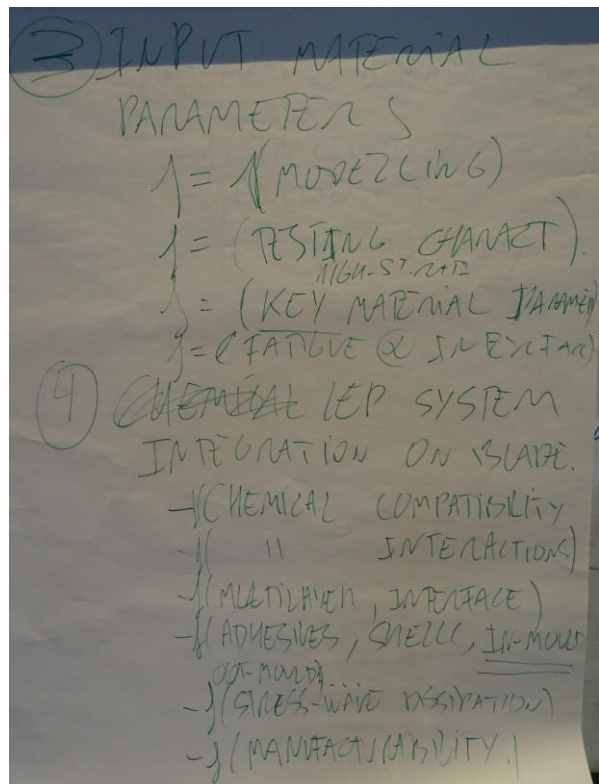 3 INPUT MATERIAL
PARAMETERS
f = f(MODELLING)
f = (TESTING CHARACT).
HIGH-ST. RATE
f = (KEY MATERIAL PARAMET)
f = (FATIGUE @ INTERFAC)
4 CHEMICAL LEP SYSTEM
INTEGRATION ON BLADE.
-f(CHEMICAL COMPATIBILITY
-f( " INTERACTIONS)
-f(MULTILAYER, INTERFACE)
-f(ADHESIVES, SHELLS, IN-MOULD
OUT-MOULD)...
-f(STRESS-WAVE DISSIPATION)
-f(MANUFACTURABILITY,)